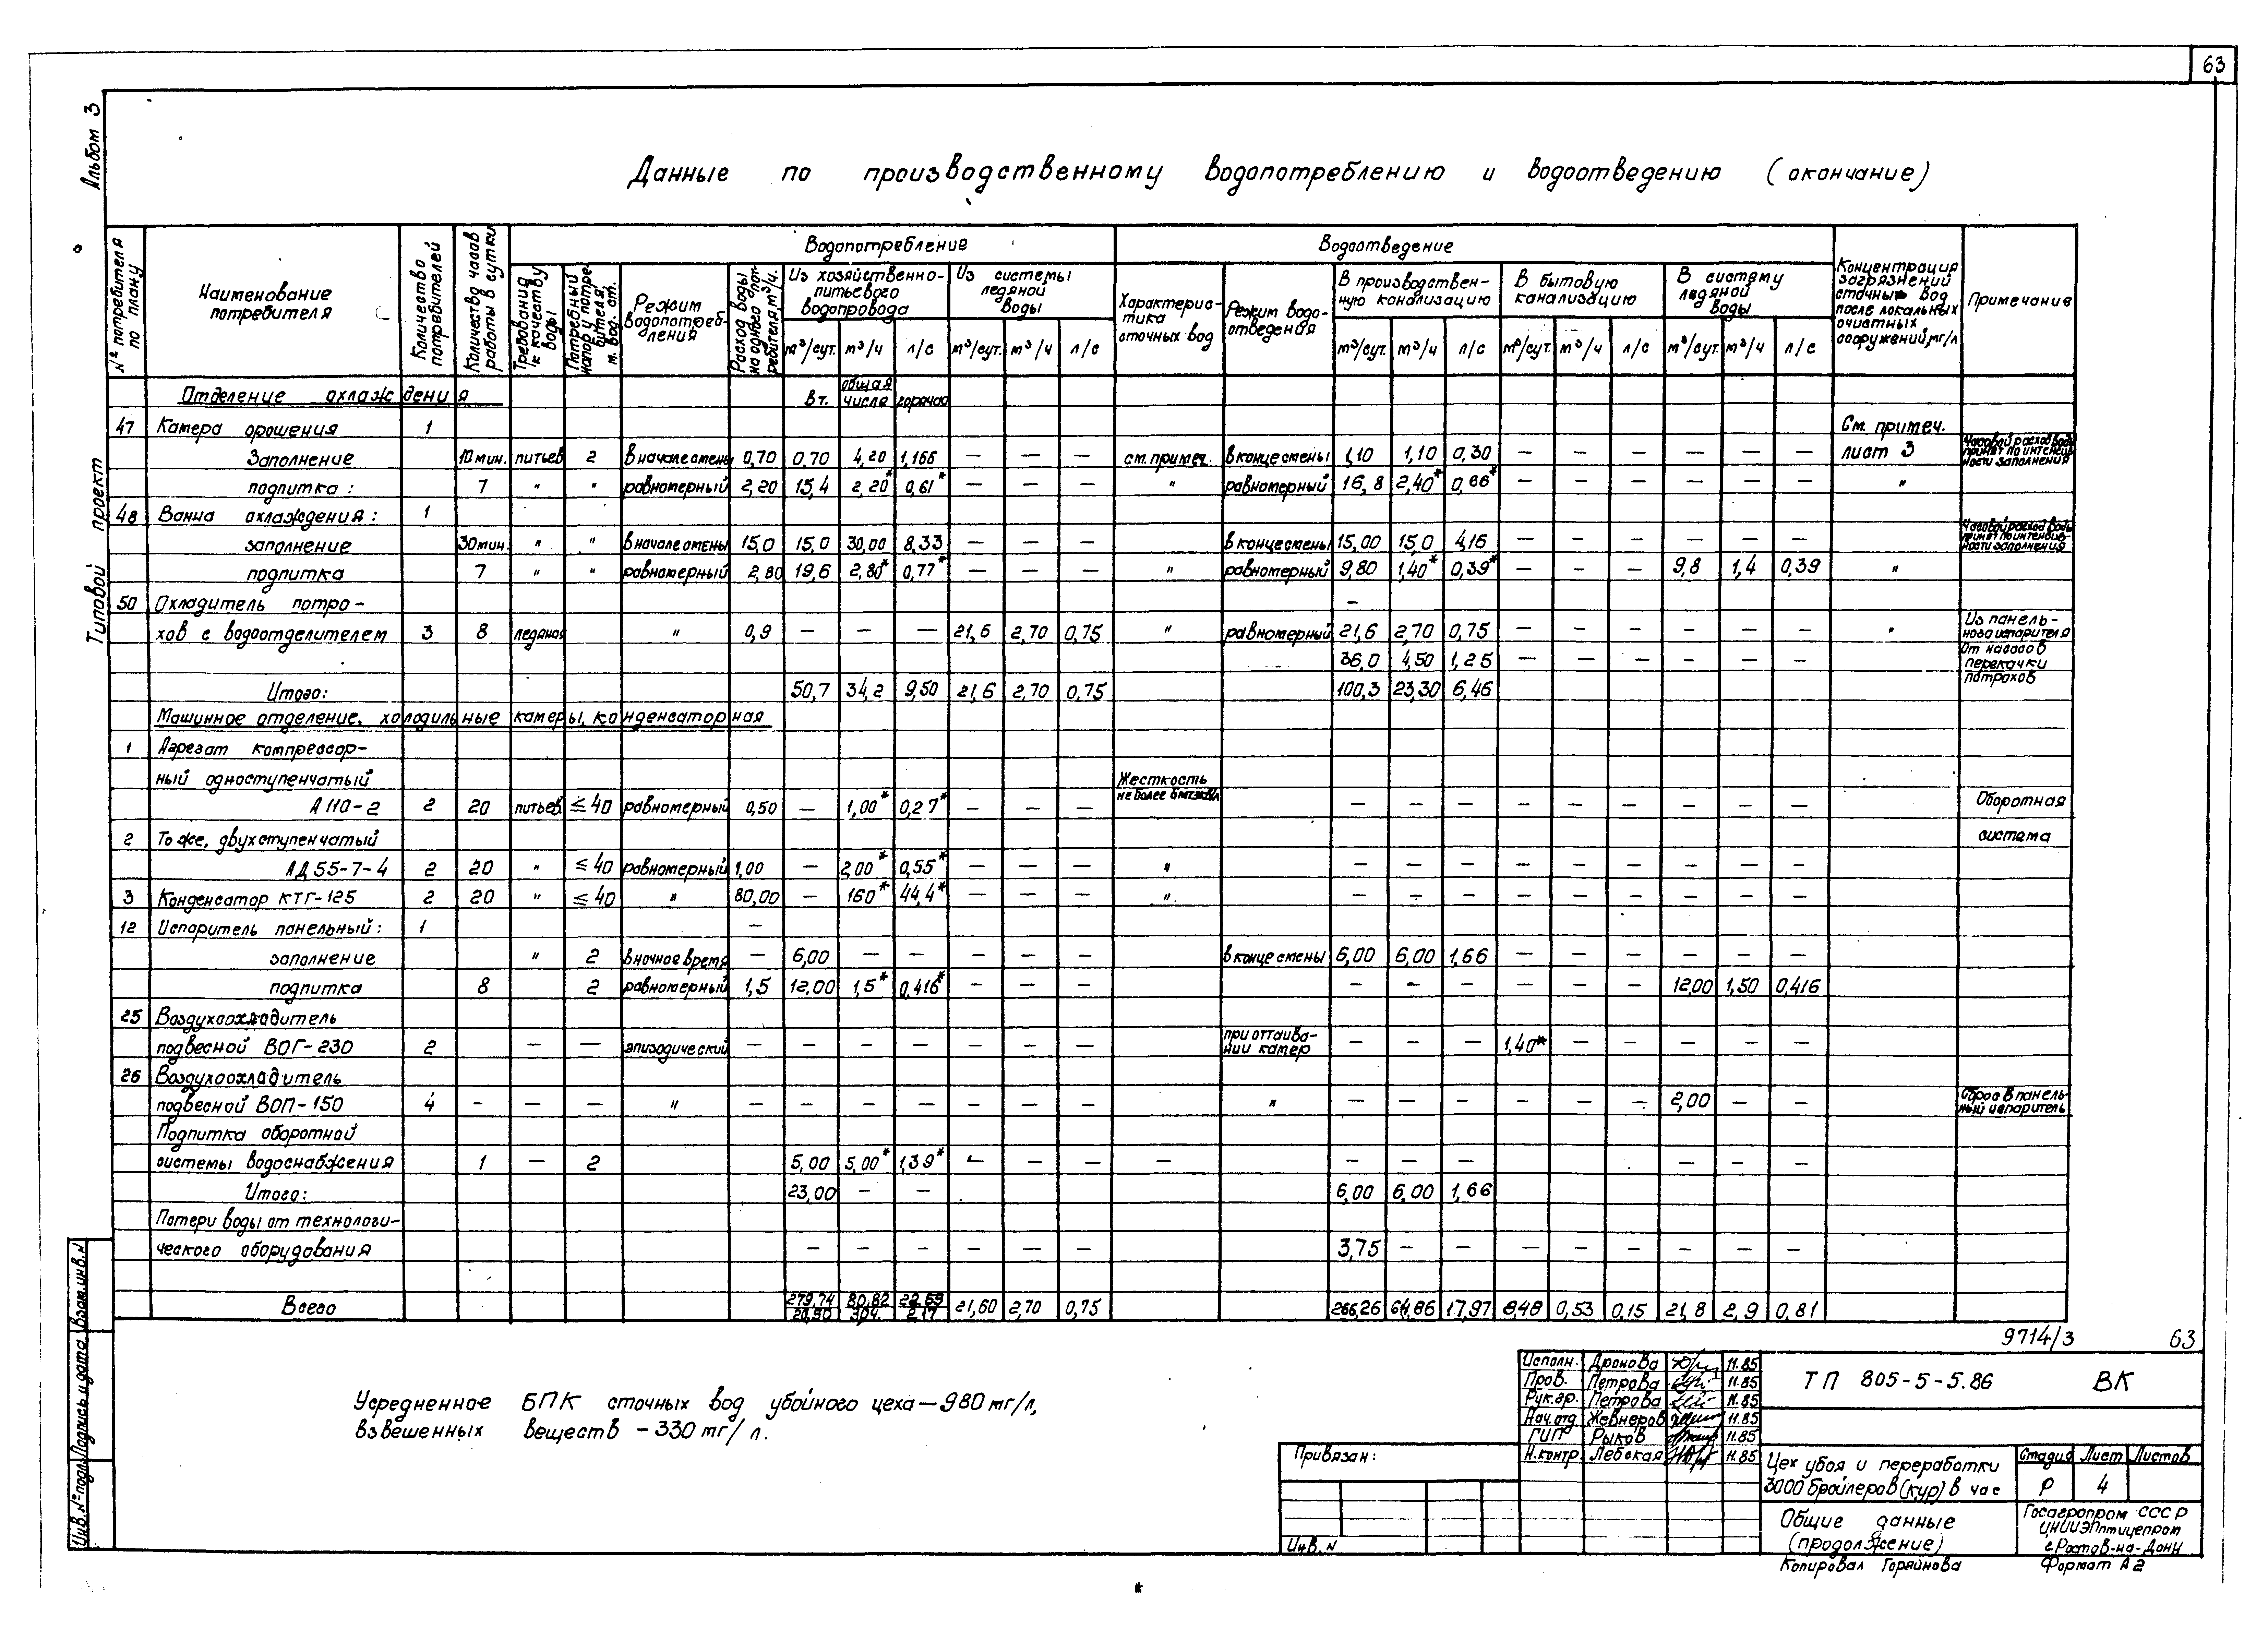 63
Альбом 3
Типовой проект
Данные по производственному водопотреблению и водоотведению (окончание)
№ потребителя по плану
Наименование потребителя
Количество потребителей
Количество часов работы в сутки
Водопотребление
Требования к качеству воды
Потребный напор у потребителя, м. вод. ст.
Режим водопотребления
Расход воды на одного потребителя, м³/ч.
Из хозяйственно-питьевого водопровода
Из системы ледяной воды
м³/сут. м³/ч л/с м³/сут. м³/ч л/с
Водоотведение
Характеристика сточных вод
Режим водоотведения
В производственную канализацию
В бытовую канализацию
В систему ледяной воды
м³/сут. м³/ч л/с м³/сут. м³/ч л/с м³/сут. м³/ч л/с
Концентрация загрязнений сточных вод после локальных очистных сооружений, мг/л
Примечание
Отделение охлаждения в т. числе общая горячая
47 Камера орошения 1 См. примеч.
Заполнение 10 мин. питьев 2 в начале смены 0,70 0,70 4,20 1,166 — — — см. примеч. в конце смены 1,10 1,10 0,30 — — — — — — лист 3 Часовой расход воды принят по интенсивности заполнения
подпитка: 7 " " равномерный 2,20 15,4 2,20* 0,61* — — — " равномерный 16,8 2,40* 0,66* — — — — — — "
48 Ванна охлаждения: 1
заполнение 30 мин. " " в начале смены 15,0 15,0 30,00 8,33 — — — в конце смены 15,00 15,0 4,16 — — — — — — Часовой расход воды принят по интенсивности заполнения
подпитка 7 " " равномерный 2,80 19,6 2,80* 0,77* — — — " равномерный 9,80 1,40* 0,39* — — — 9,8 1,4 0,39 "
50 Охладитель потро-
хов с водоотделителем 3 8 ледяная " 0,9 — — — 21,6 2,70 0,75 " равномерный 21,6 2,70 0,75 — — — — — — " Из панельного испарителя
36,0 4,50 1,25 — — — — — От насосов перекачки потрохов
Итого: 50,7 34,2 9,50 21,6 2,70 0,75 100,3 23,30 6,46
Машинное отделение, холодильные камеры, конденсаторная
1 Агрегат компрессор-
ный одноступенчатый Жесткость
А110-2 2 20 питьев ≤40 равномерный 0,50 — 1,00* 0,27* — — — не более — — — — — — — — — Оборотная
2 То же, двухступенчатый система
АД55-7-4 2 20 " ≤40 равномерный 1,00 — 2,00* 0,55* — — — " — — — — — — — — —
3 Конденсатор КТГ-125 2 20 " ≤40 " 80,00 — 160* 44,4* — — — " — — — — — — — — —
12 Испаритель панельный: 1 —
заполнение " 2 в ночное время — 6,00 — — — — — в конце смены 6,00 6,00 1,66 — — — — — —
подпитка 8 2 равномерный 1,5 12,00 1,5* 0,416* — — — — — — — — — 12,00 1,50 0,416
25 Воздухоохладитель
подвесной ВОГ-230 2 — — эпизодический — — — — — — — при оттаивании камер — — — 1,40* — — — — —
26 Воздухоохладитель
подвесной ВОП-150 4 — — — " — — — — — — — " — — — — — — 2,00 — — Сброс в панельный испаритель
Подпитка оборотной
системы водоснабжения 1 — 2 5,00 5,00* 1,39* — — — — — — — — — —
Итого: 23,00 — — 6,00 6,00 1,66
Потери воды от технологи-
ческого оборудования — — — — — — 3,75 — — — — — — — —
Всего 279,74/20,50 80,82/3,04. 22,59/2,17 21,60 2,70 0,75 266,26 64,86 17,97 8,48 0,53 0,15 21,8 2,9 0,81
9714/3 63
Усредненное БПК сточных вод убойного цеха — 980 мг/л,
взвешенных веществ — 330 мг/л.
Взам. инв. №
Подпись и дата
Инв. № подл.
Привязан:
Инв. №
Исполн. Дронова 11.85
Пров. Петрова 11.85
Рук. гр. Петрова 11.85
Нач. отд. Жевнеров 11.85
ГИП Рыков 11.85
Н. контр. Лебская 11.85
ТП 805-5-5.86 ВК
Цех убоя и переработки
3000 бройлеров (кур) в час
Стадия Лист Листов
Р 4
Общие данные
(продолжение)
Госагропром СССР
ЦНИИЭПптицепром
г. Ростов-на-Дону
Копировал Горяйнова Формат А2